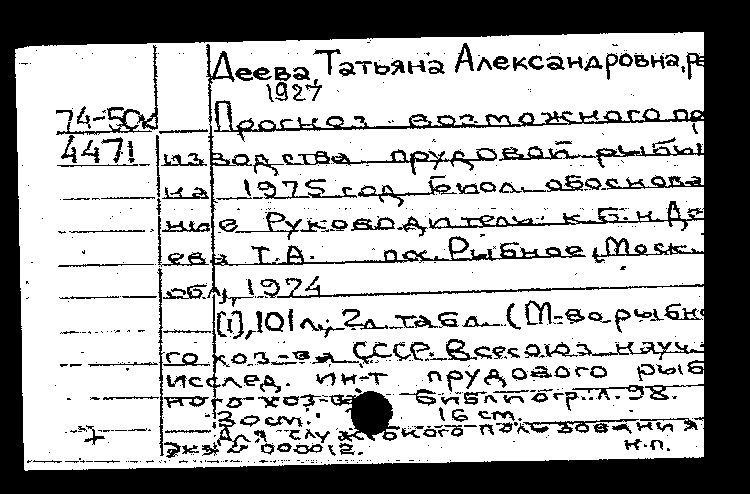 Деева, Татьяна Александровна, р
1927
74-50к Прогноз возможного пр
4471 изводства прудовой рыбы
на 1975 год. Биол. обоснова
ние Руководитель: к.б.н Де
ева Т.А. пос. Рыбное, Моск.
обл, 1974
[1], 101 л.; 2л. табл. (М-во рыбн
го хоз-ва СССР. Всесоюз науч.-
исслед. ин-т прудового рыб
ного хоз-ва Библиогр.: л. 98.
30 см. 16 см.
Для служебного пользования
Экз № 000012. н.п.